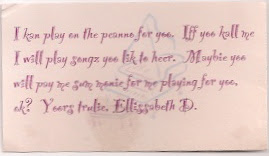 I kan play on the peanno for yoo. Iff yoo kall me
I will play songz you lik to heer. Maybie you
will pay me sum monie for me playing for yoo,
ok? Yoors trulie, Ellissabeth D.